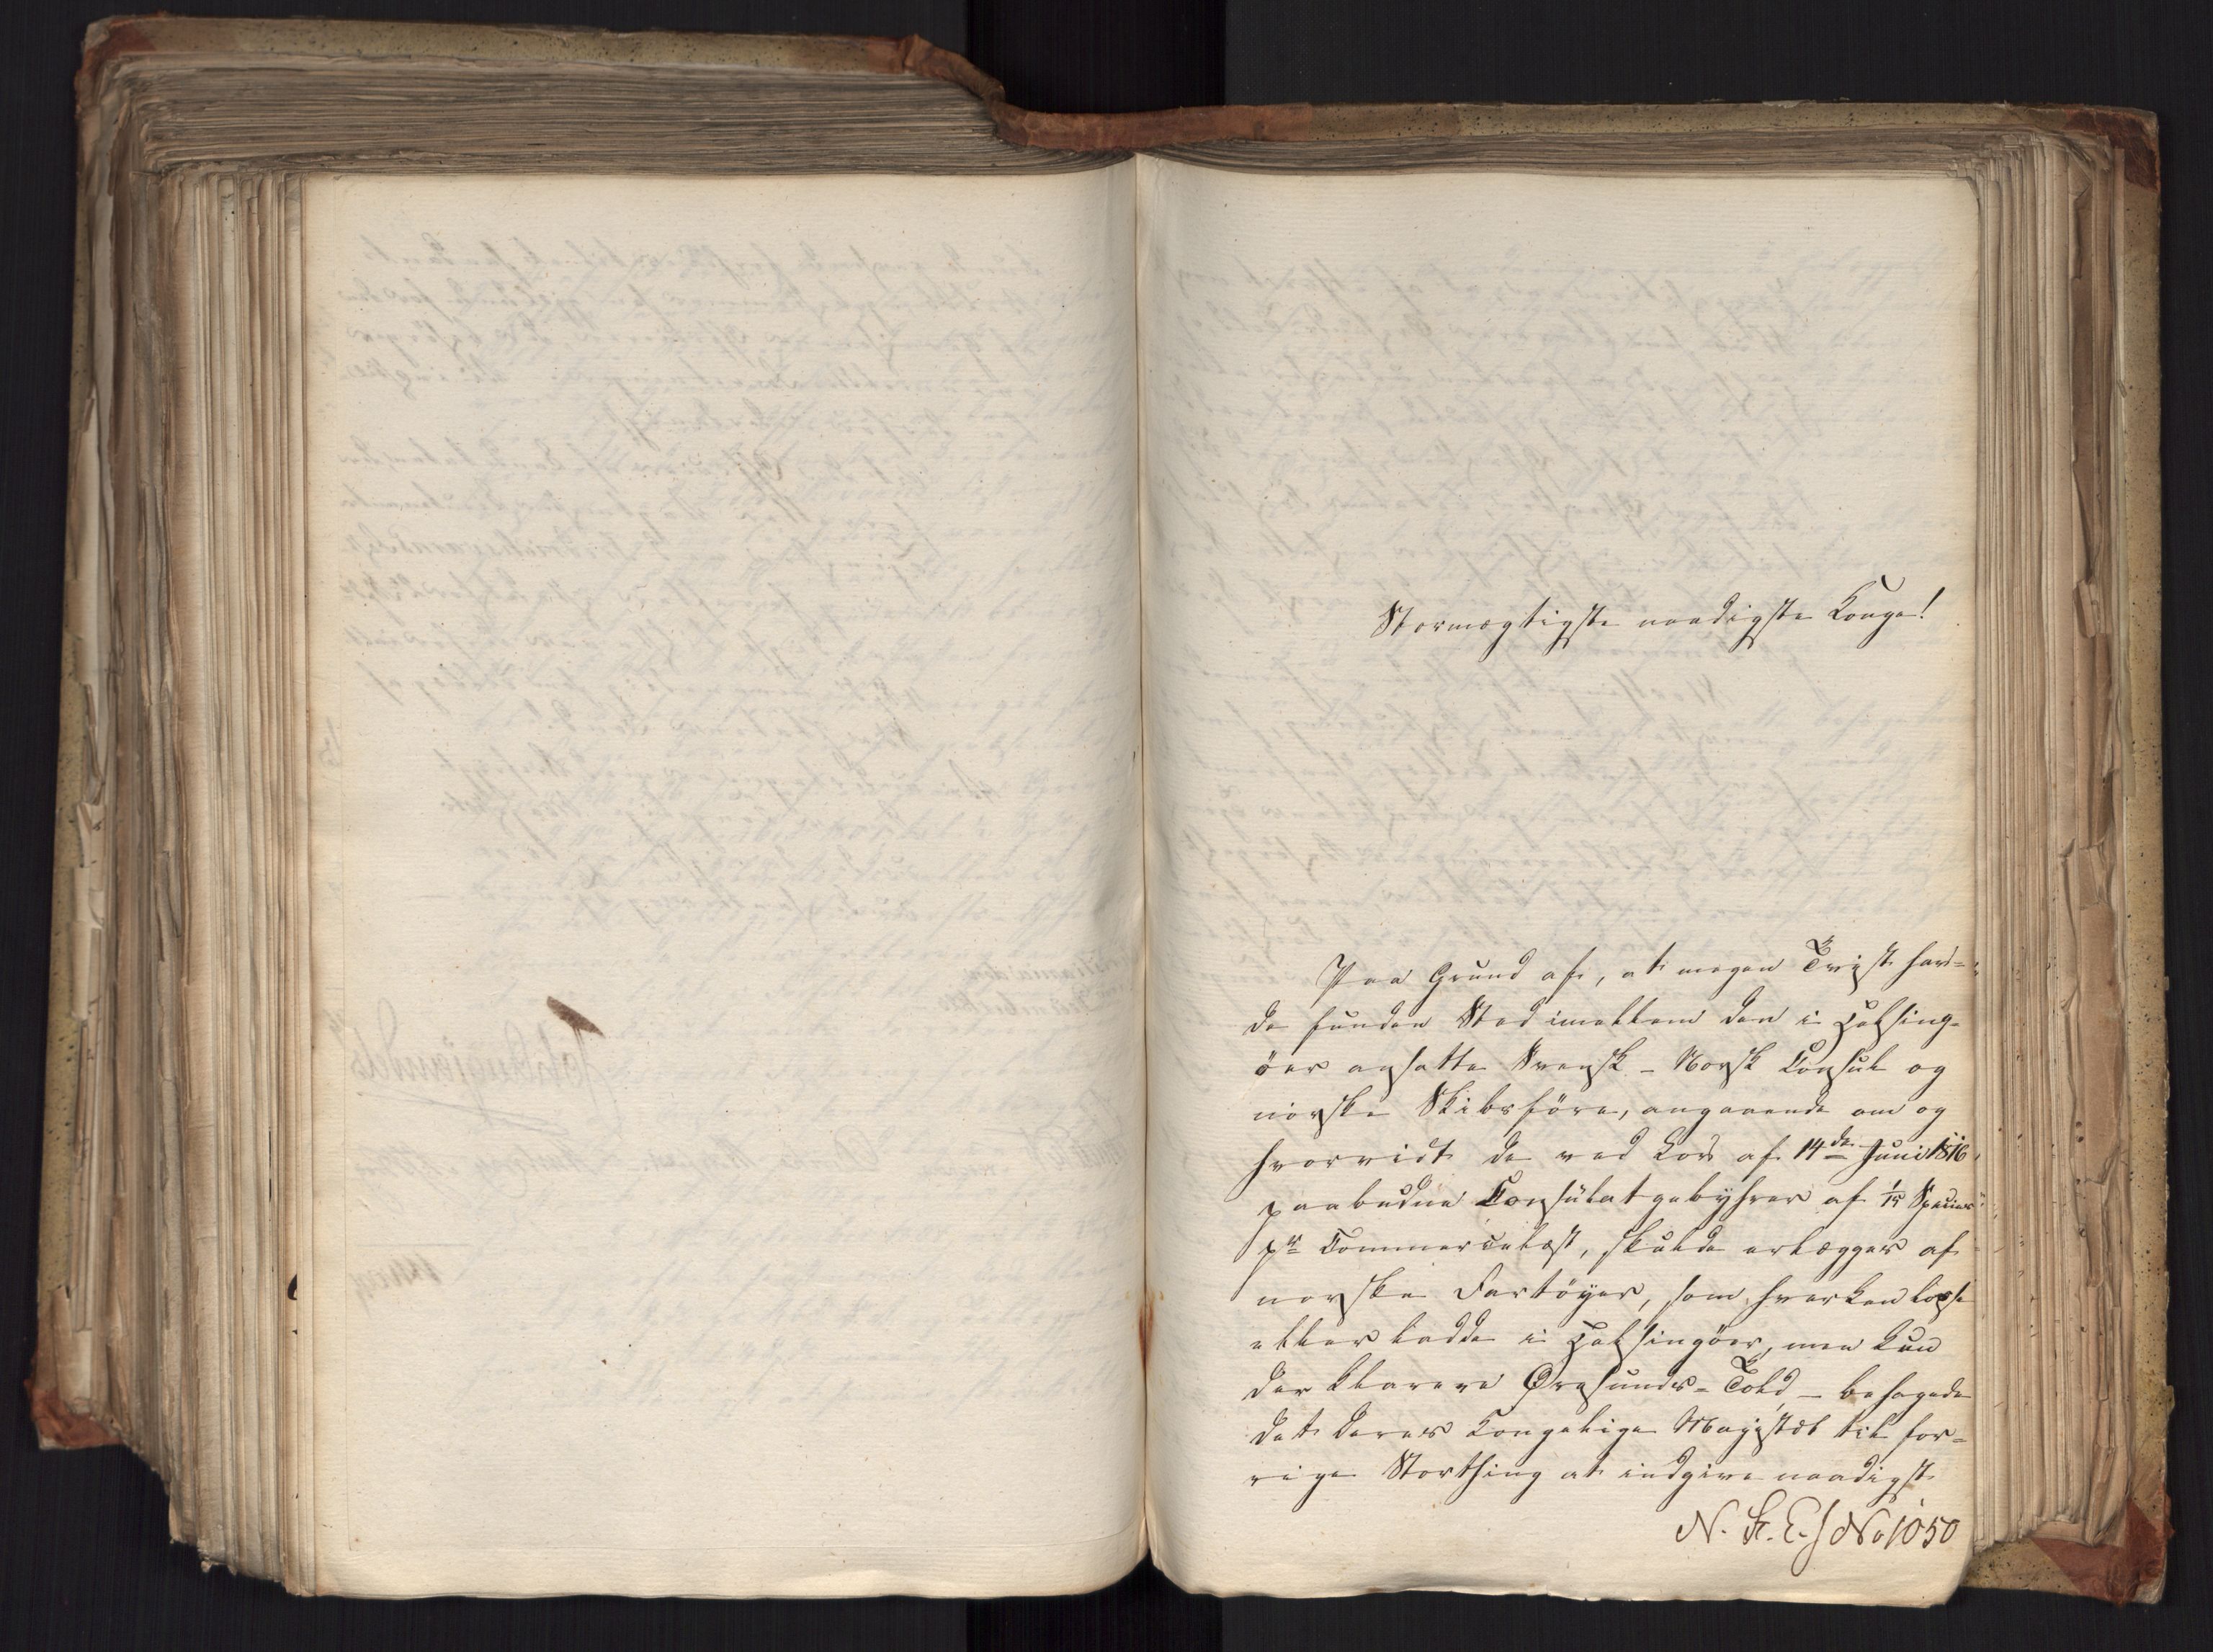 Stormægtigste naadigste Konge!
Paa Grund af, at megen Tvist hav=
de funden Sted imellem den i Helsing-
öer ansatte Svensk-Norsk Consul og
norske Skibsföre, angaaende om og
hvorvidt de ved Lov af 14de Juni 1816
paabudne Consulatgebyhrer af 1/15 Species
pr Commercelæst, skulde erlægges af
norske Fartöyer, som hverken losse
eller ladde i Helsingöer, men kun
der klarere Øresunds-Told - behagede
det Deres Kongelige Majestæt til for=
rige Storthing at indgive naadigst
N. St. E. J No 1050